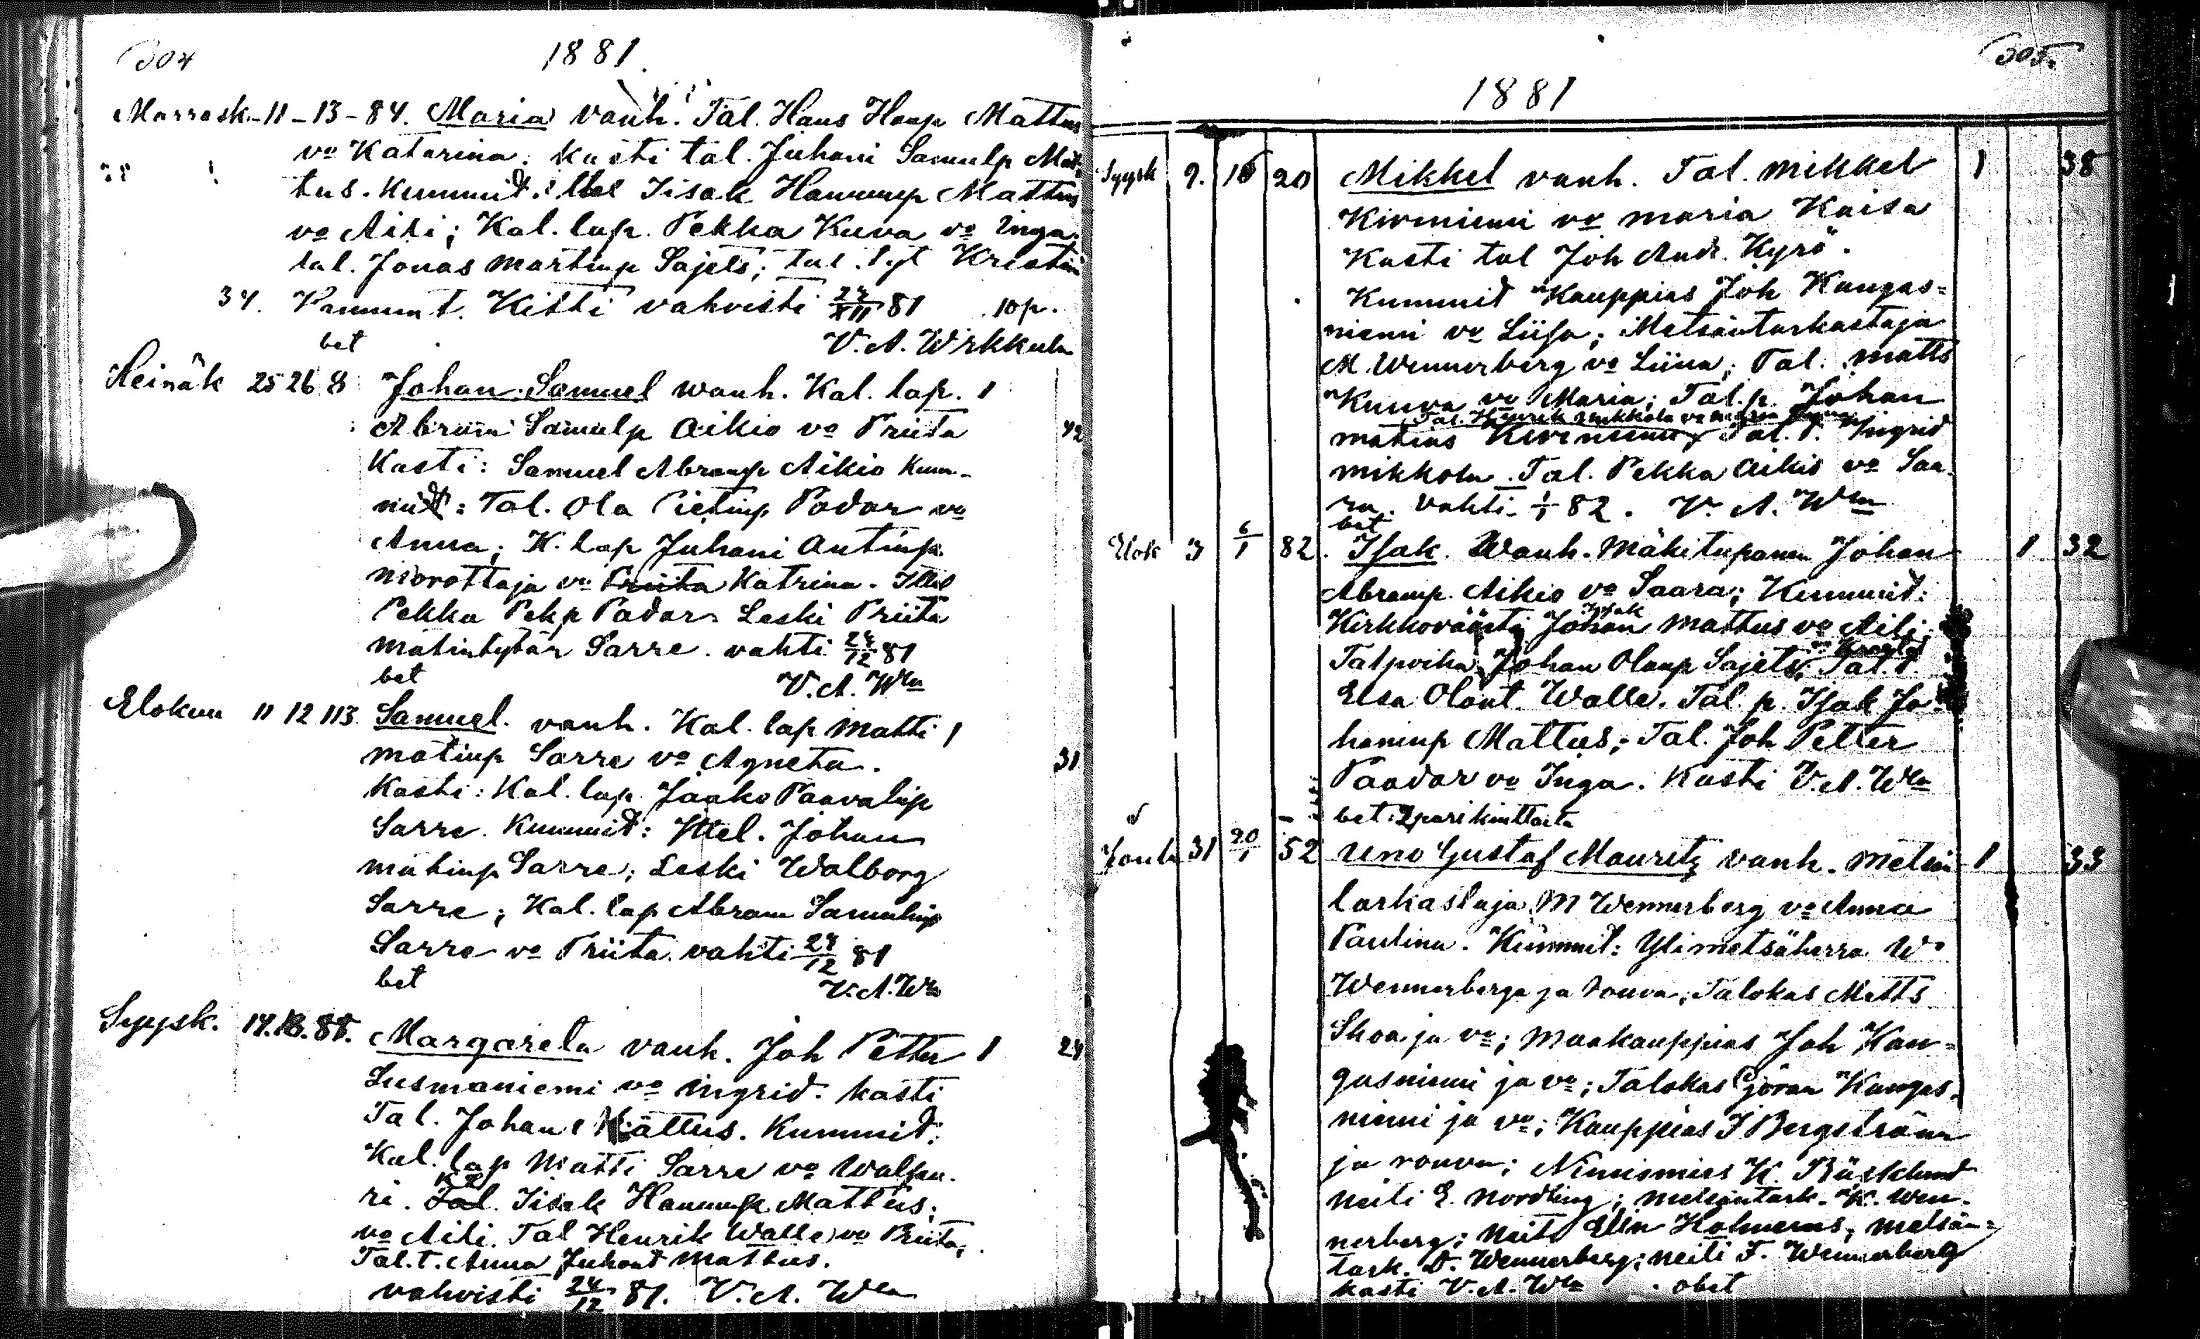 304
1881.
Marrask. 11 - 13 - 84. Maria vanh. Tal. Hans Hanp Mattus
vo Katarina. Kasti tal. Juhani Samulp Mat-
tus. Kummit: Itel Iisak Hannunp Mattus
vo Aili; Kal. lap. Pekka Kuva vo Inga.
tal. Jonas Martinp Sajets; tal. tyt Kristin
34. Pamunt. Kitti vahvisti 24/XII 81 10 p.
bet V. A. Wirkkula
Heinäk 25 26 8 Johan Samuel wanh. Kal. lap. 1
Abram Samulp Aikio vo Priita 42
Kasti: Samuel Abramp Aikio Kum-
mit: Tal. Ola Pietinp Padar vo
Anna; K. lap Juhani Antinp
Morottaja vo Priita Katrina. Itel
Pekka Pekp Padar Leski Priita
Matintytär Sarre. vahti 24/12 81
bet V. A. Wla
Elokuu 11 12 113. Samuel. vanh. Kal. lap Matti 1
Matinp Sarre vo Agneta. 31
Kasti: Kal. lap. Jaako Paavalinp
Sarre. Kummit: Itel. Johan
Matinp Sarre; Leski Walborg
Sarre; Kal. lap Abram Samulinp
Sarre vo Priita. vahti 24/12 81
bet V. A. Wla
Syysk. 17. 18. 88. Margareta vanh. Joh Petter 1 24
Lusmaniemi vo Ingrid. kasti
Tal. Johan Mattus. Kummit:
Kal. lap Matti Sarre vo Walpu-
ri. Tal. Iisak Hannunp Mattus;
vo Aili. Tal Henrik Walle vo Priita;
Tal. t. Anna Juhant Mattus.
vahvisti 24/12 81. V. A. Wla
305.
1881
Syysk 9. 16 20 Mikkel vanh. Tal. Mikkel 1 38
Kiviniemi vo Maria Kaisa
Kasti tal Joh And. Kyrö.
Kummit Kauppias Joh Kangas=
niemi vo Liisa; Metsäntarkastaja
M. Wennerberg vo Liina; Tal. Matts
Kuuva vo Maria; Tal. p. Johan
Tal. Henrik Mikkola vo Maria
Matias Kiviniemi Tal. t. Ingrid
Mikkola. Tal. Pekka Aikio vo Saa-
ra. vahti 1/1 82. V. A. Wla
bet
Elok 3 6/1 82. Isak. Wanh. Mäkitupanen Johan 1 32
Abramp. Aikio vo Saara; Kummit:
Kirkkoväärti Johan Isak Mattus vo Aili;
Talpoika Johan Olanp Sajets, Tal. t
Elsa Olant. Walle. Tal. p. Isak Jo-
haninp Mattus; Tal. Joh Petter
Paadar vo Inga. Kasti V. A. Wla
bet. 2 pari kinttaita
Jouluk 31 20/1 52 Uno Gustaf Mauritz vanh. Metsän 1 33
tarkastaja M Wennerberg vo Anna
Paulina. Kummit: Ylimetsäherra W.
Wennerberg ja rouva; Talokas Matts
Skoa ja vo; Maakauppias Joh Kan-
gasniemi ja vo; Talokas Göran Kangas.
niemi ja vo; Kauppias J Bergström
ja rouva; Nimismies K. Bäcklund
neiti E. Nordling; metsäntark. K. Wen-
nerberg; neiti Elin Holmerus; metsän=
tark. D. Wennerberg; neiti F. Wennerberg
kasti V. A. Wla . obet